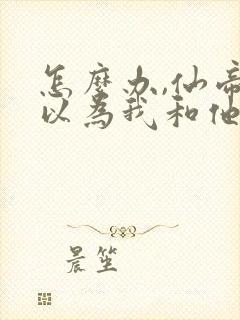 怎麼办,仙帝
以為我和他
晨笙